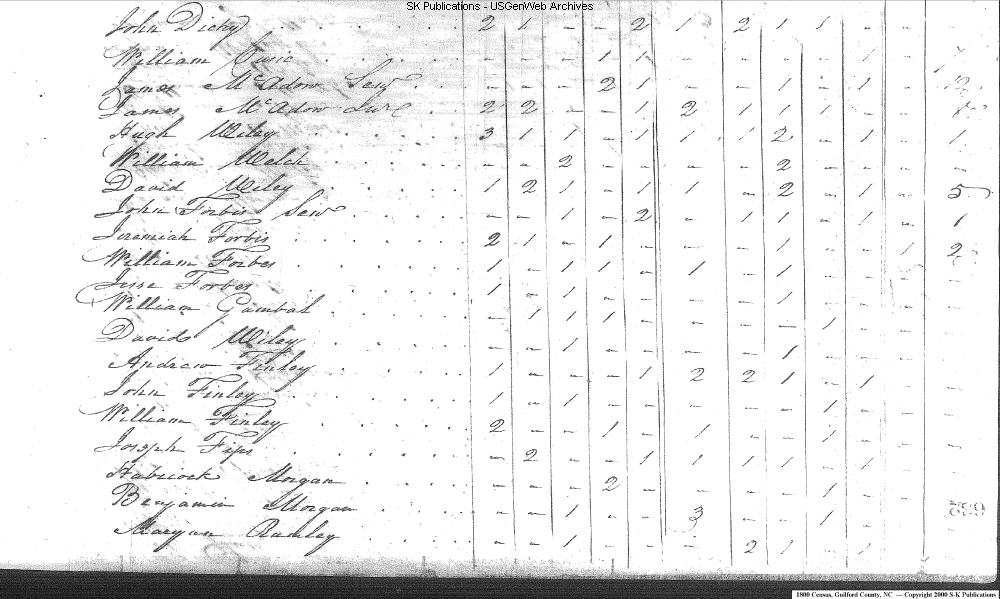 SK Publications - USGenWeb Archives
John Dicky 2 1 - - 2 1 2 1 1 - -
William - - - - 1 1 - - - 1 - -
James McAdow Senr - - - 2 1 - - 1 - 1 - 12
James McAdow Junr 2 2 - - 1 2 1 1 1 - -
Hugh Wiley 3 1 - - 1 1 1 2 - 1 - 1
William Welch - - 2 - - - - 2 - - - -
David Wiley 1 2 1 - 1 1 - 2 - 1 - 5
John Forbis Senr - - 1 - 2 - 1 1 - 1 - 1
Jeremiah Forbis 2 1 - 1 - - - 1 - - 1 2
William Forbes 1 - 1 1 - 1 - 1 - - - -
Jesse Forbes 1 - 1 - - - - 1 - - - -
William Gambal - 1 1 1 - - - - 1 - - -
David Wiley - - 1 - - - - 1 - - - -
Andrew Finley 1 - - - 1 2 2 1 - 1 - -
John Finley 1 - 1 - - - - - 1 - - -
William Finley 2 - - 1 - 1 - - 1 - - -
Joseph Fips - 2 - - 1 1 1 1 1 - - -
Morgan - - - 2 - - - - 1 - - -
Benjamin Morgan - - 1 - - 3 - - 1 - - -
Maryan - - 1 - - - 2 1 - 1 - -
1800 Census, Guilford County, NC — Copyright 2000 S-K Publications